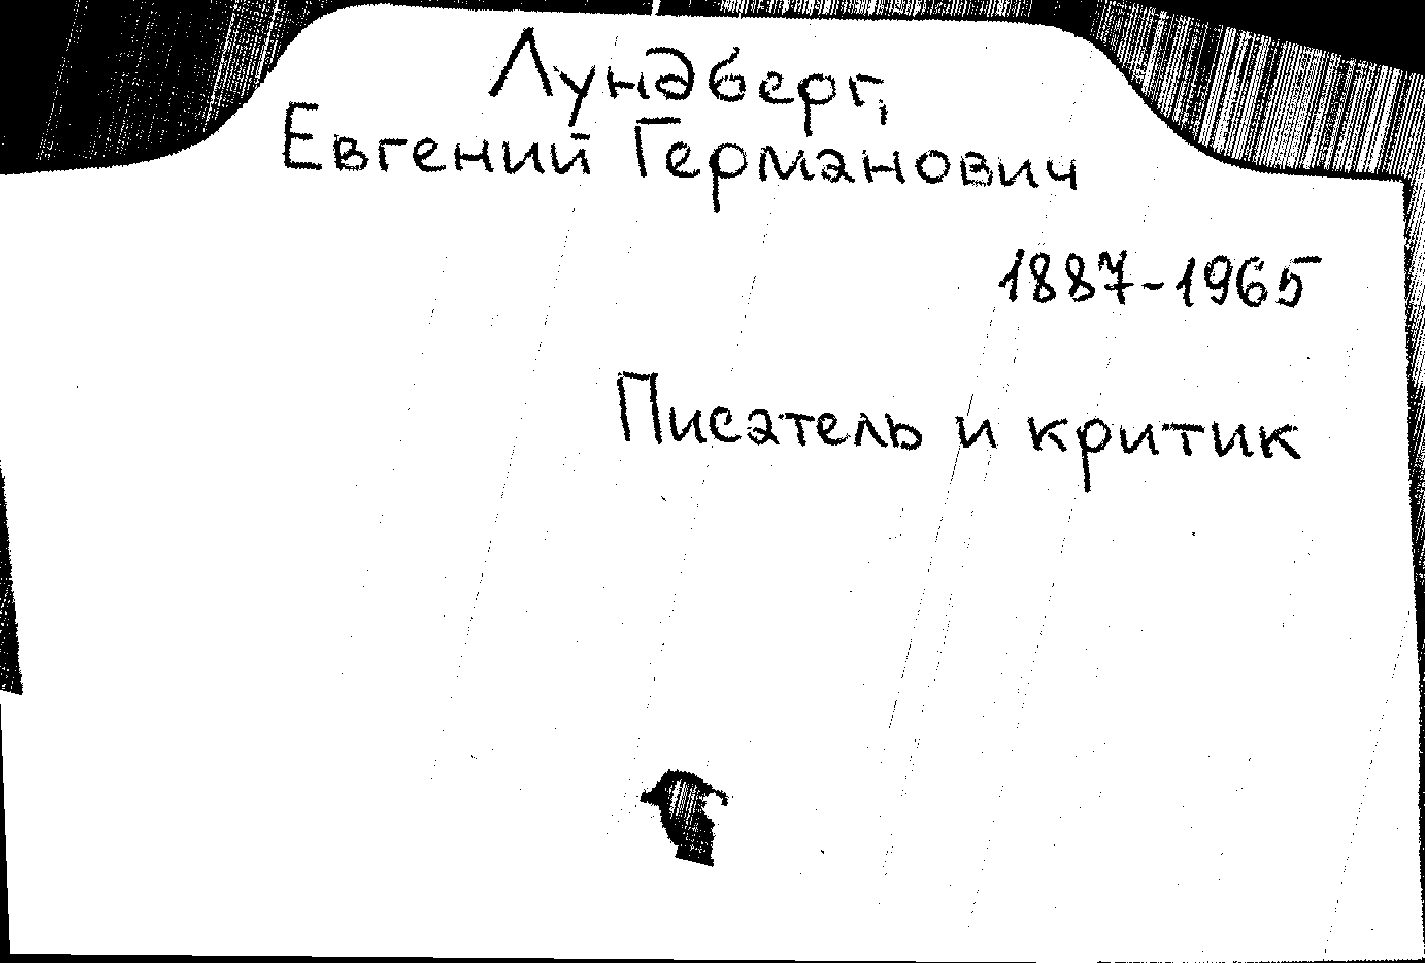 Лундберг,
Евгений Германович
1887-1965
Писатель и критик